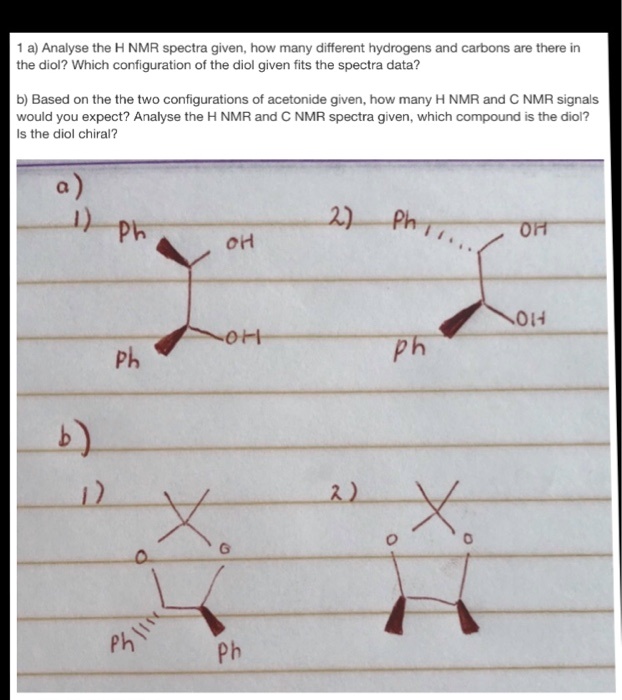 1 a) Analyse the H NMR spectra given, how many different hydrogens and carbons are there in
the diol? Which configuration of the diol given fits the spectra data?
b) Based on the the two configurations of acetonide given, how many H NMR and C NMR signals
would you expect? Analyse the H NMR and C NMR spectra given, which compound is the diol?
Is the diol chiral?
a)
1) Ph OH
OH
Ph
2) Ph OH
OH
Ph
b)
1)
O O
Ph
Ph
2)
O O